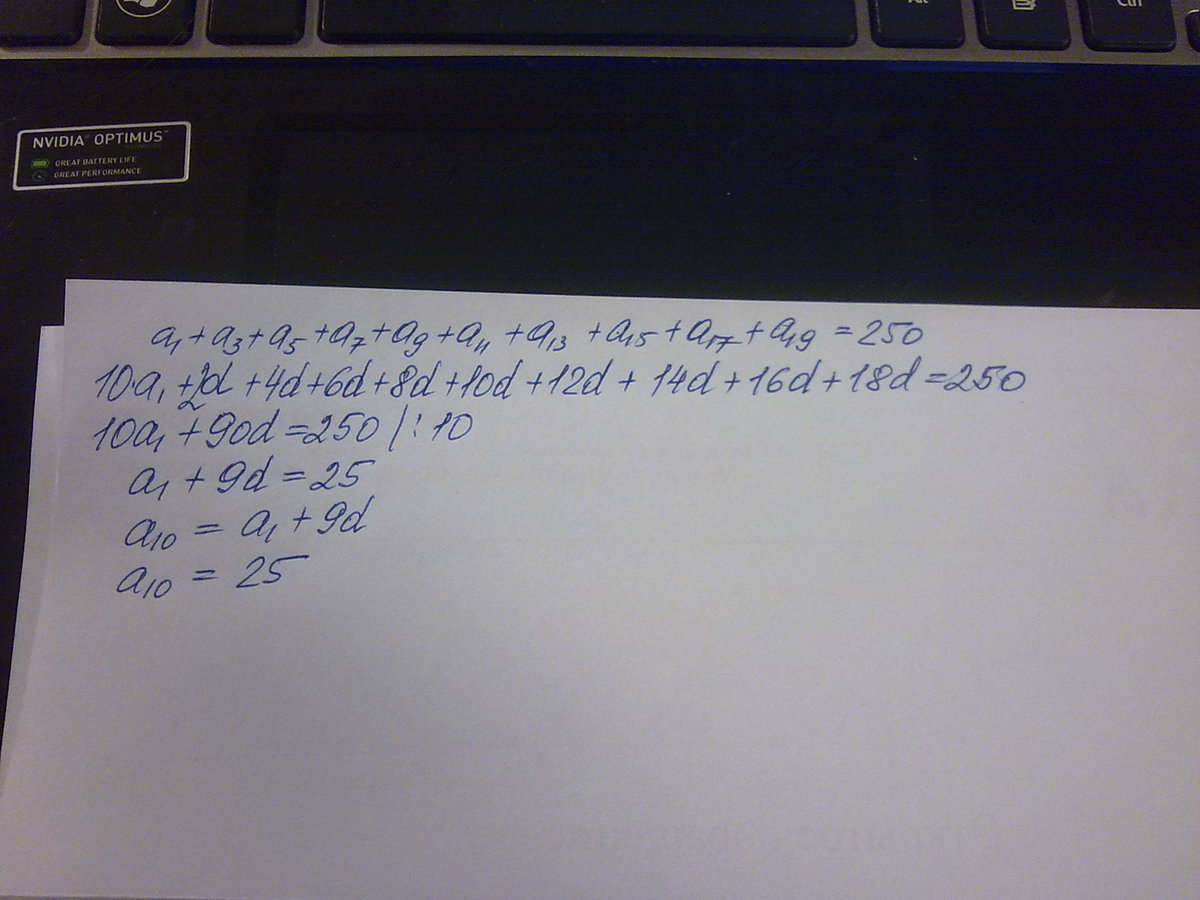 Alt
Ctrl
NVIDIA® OPTIMUS™
GREAT BATTERY LIFE
GREAT PERFORMANCE
a₁ + a₃ + a₅ + a₇ + a₉ + a₁₁ + a₁₃ + a₁₅ + a₁₇ + a₁₉ = 250
10·a₁ + 2d + 4d + 6d + 8d + 10d + 12d + 14d + 16d + 18d = 250
10a₁ + 90d = 250 | : 10
a₁ + 9d = 25
a₁₀ = a₁ + 9d
a₁₀ = 25